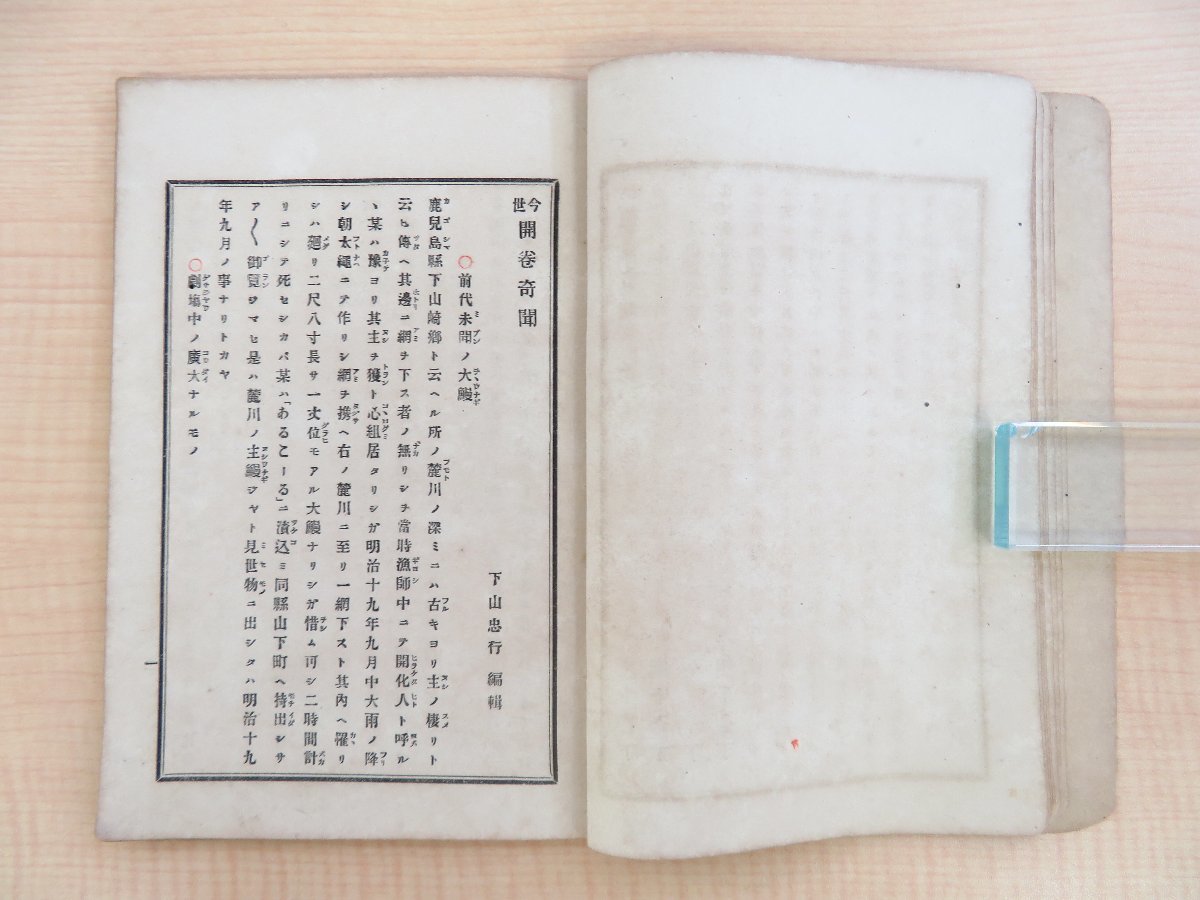 今世開卷奇聞
下山忠行 編輯
○前代未聞ノ大鰻
鹿兒島縣下山崎鄉ト云ヘル所ノ麓川ノ深ミニハ古キヨリ主ノ棲リト
云ヒ傳ヘ其邊ニ網ヲ下ス者ノ無リシヲ當時漁師中ニテ開化人ト呼ル
丶某ハ豫ヨリ其主ヲ獲ト心組居タリシガ明治十九年九月中大雨ノ降
シ朝太繩ニテ作リシ網ヲ携ヘ右ノ麓川ニ至リ一網下スト其內ヘ罹リ
シハ廻リ二尺八寸長サ一丈位モアル大鰻ナリシガ惜ム可シ二時間計
リニシテ死セシカバ某ハ「あるこーる」ニ漬込ミ同縣山下町ヘ待出シサ
ア〱御覽ヲマヒ是ハ麓川ノ主鰻ヂヤト見世物ニ出シタハ明治十九
年九月ノ事ナリトカヤ
○劇塲中ノ廣大ナルモノ
一